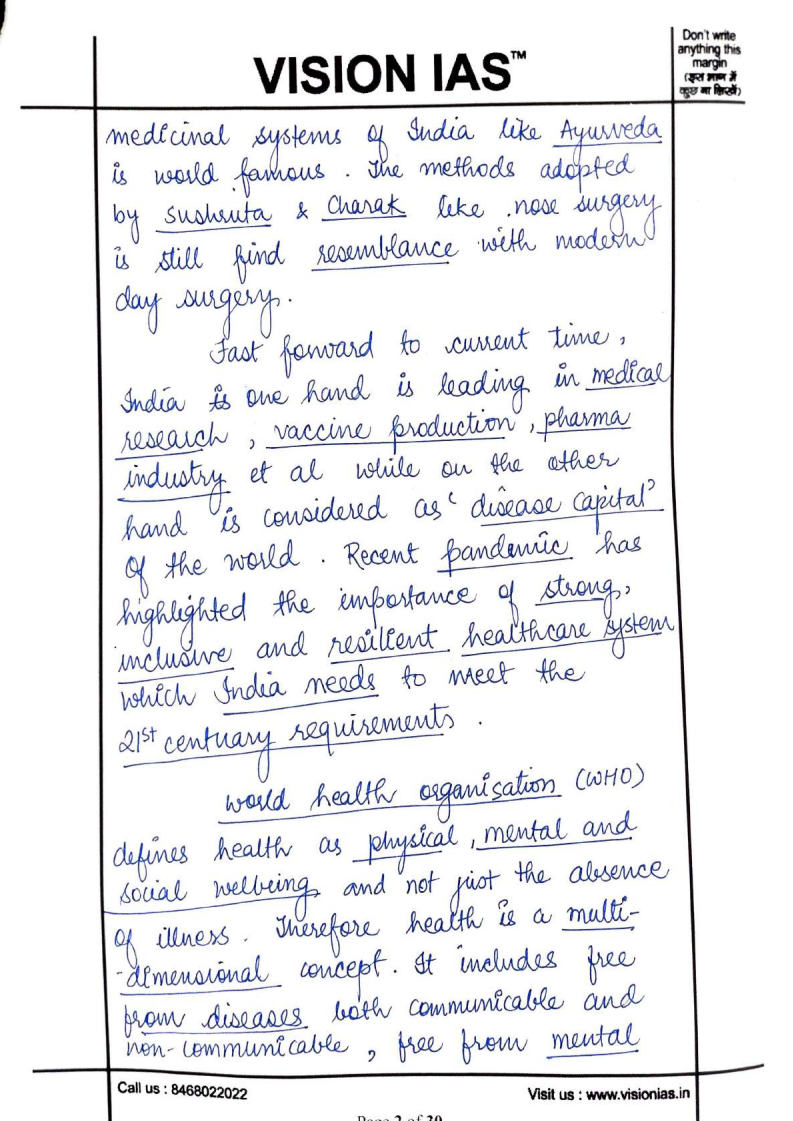 Don't write
anything this
margin
(इस भाग में
कुछ ना लिखें)
VISION IAS™
medicinal systems of India like Ayurveda
is world famous. The methods adopted
by Sushruta & Charak like nose surgery
is still find resemblance with modern
day surgery.
Fast forward to current time,
India is one hand is leading in medical
research, vaccine production, pharma
industry et al while on the other
hand is considered as 'disease capital'
of the world. Recent pandemic has
highlighted the importance of strong,
inclusive and resilient healthcare system
which India needs to meet the
21st centuary requirements.
World health organisation (WHO)
defines health as physical, mental and
social welbeing and not just the absence
of illness. Therefore health is a multi-
-dimensional concept. It includes free
from diseases both communicable and
non-communicable, free from mental
Call us : 8468022022
Visit us : www.visionias.in
Page 2 of 30